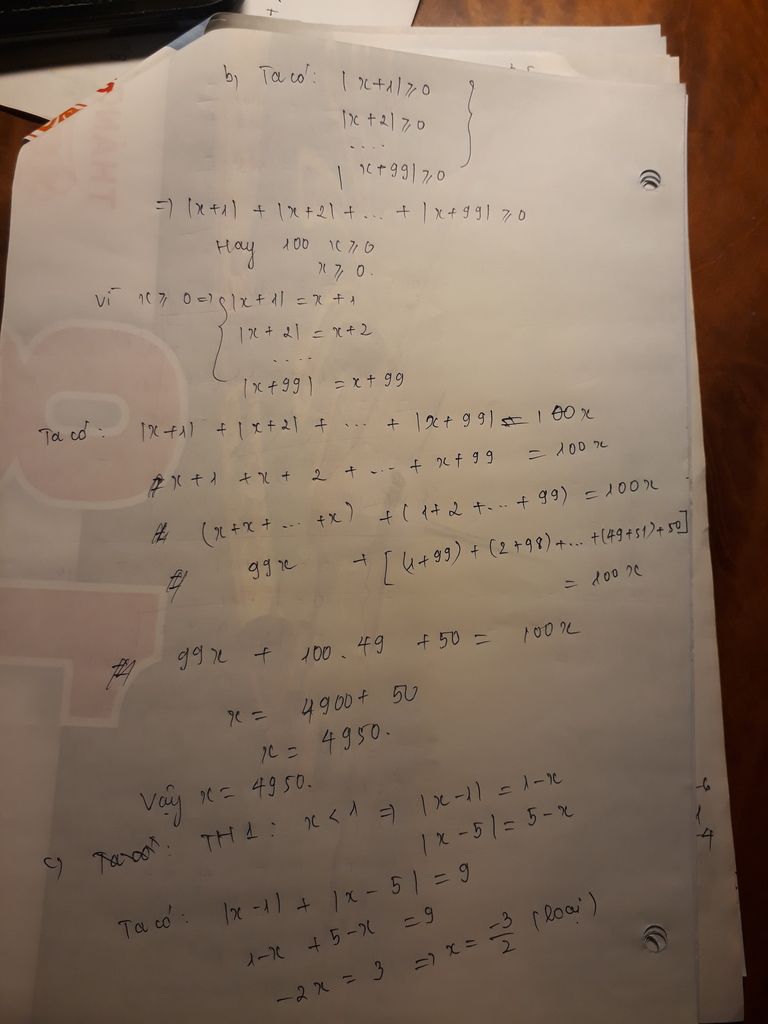 b, Ta có: |x+1| ⩾ 0
|x+2| ⩾ 0
....
|x+99| ⩾ 0
=> |x+1| + |x+2| + ... + |x+99| ⩾ 0
Hay 100 x ⩾ 0
x ⩾ 0.
Vì x ⩾ 0 => |x+1| = x+1
|x+2| = x+2
....
|x+99| = x+99
Ta có: |x+1| + |x+2| + ... + |x+99| = 100x
x+1 + x+2 + ... + x+99 = 100x
(x+x+...+x) + (1+2+...+99) = 100x
99x + [(1+99) + (2+98) + ... + (49+51) + 50]
= 100x
99x + 100.49 + 50 = 100x
x = 4900 + 50
x = 4950.
Vậy x = 4950.
c) TH1: x < 1 => |x-1| = 1-x
|x-5| = 5-x
Ta có: |x-1| + |x-5| = 9
1-x + 5-x = 9
-2x = 3 => x = -3/2 (loại)
-6
1
-4